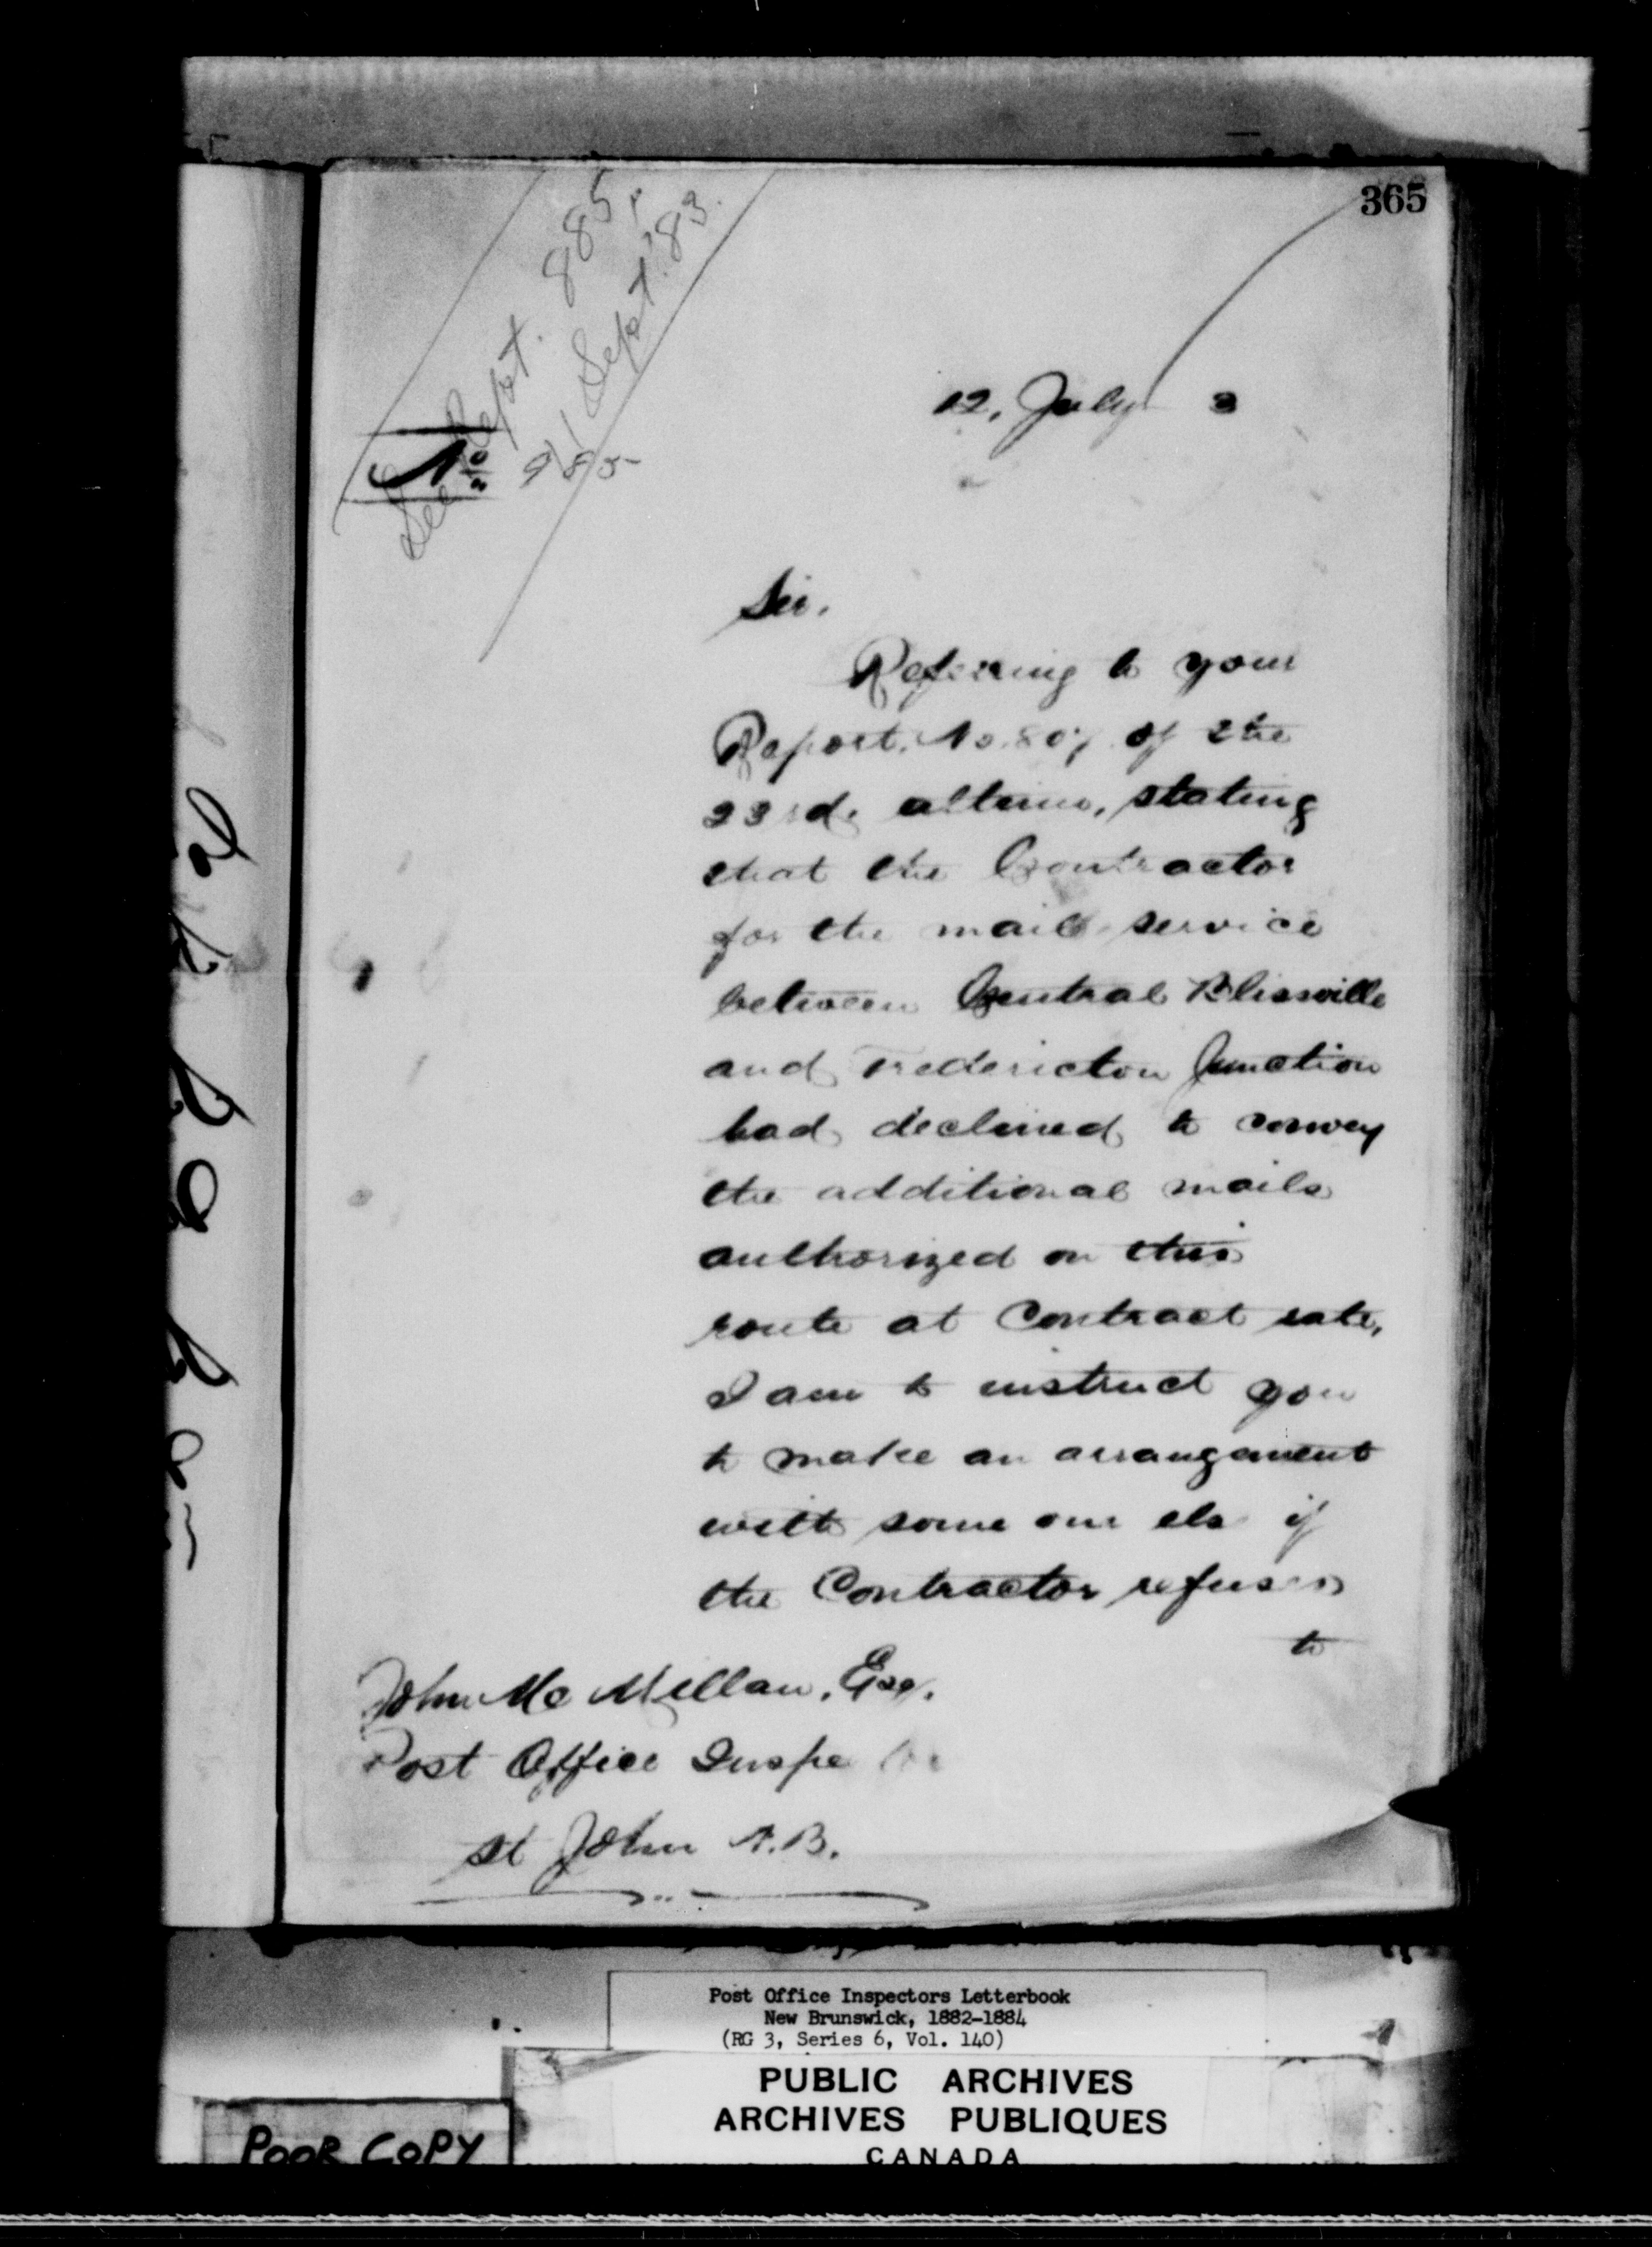 365
See Rept. 885,
21 Sept. '83.
12, July 3
No. 985
Sir.
Referring to your
Report. No. 807 of the
23rd. ultimo, stating
that the Contractor
for the mail service
between Central Blissville
and Fredericton Junction
had declined to convey
the additional mails
authorized on this
route at Contract rate,
I am to instruct you
to make an arrangement
with some one els if
the Contractor refuses
to
John Mc Millan. Esq.
Post Office Inspe
St John N.B.
Post Office Inspectors Letterbook
New Brunswick, 1882-1884
(RG 3, Series 6, Vol. 140)
PUBLIC ARCHIVES
ARCHIVES PUBLIQUES
CANADA
POOR COPY